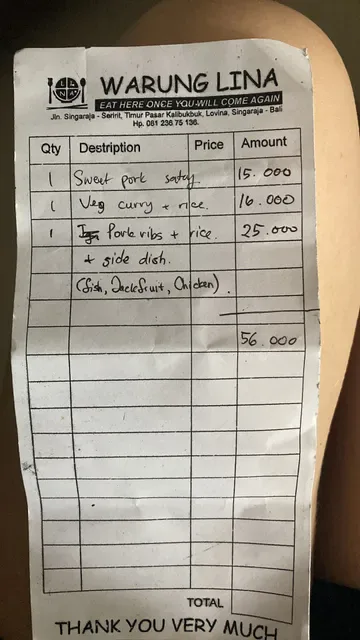 WARUNG LINA
EAT HERE ONCE YOU WILL COME AGAIN
Jln. Singaraja - Seririt, Timur Pasar Kalibukbuk, Lovina, Singaraja - Bali
Hp. 081 236 75 136.
Qty Destription Price Amount
1 Sweet pork satay 15.000
1 Veg curry + rice. 16.000
1 Pork ribs + rice. 25.000
+ side dish.
(fish, Jackfruit, Chicken).
56.000
TOTAL
THANK YOU VERY MUCH